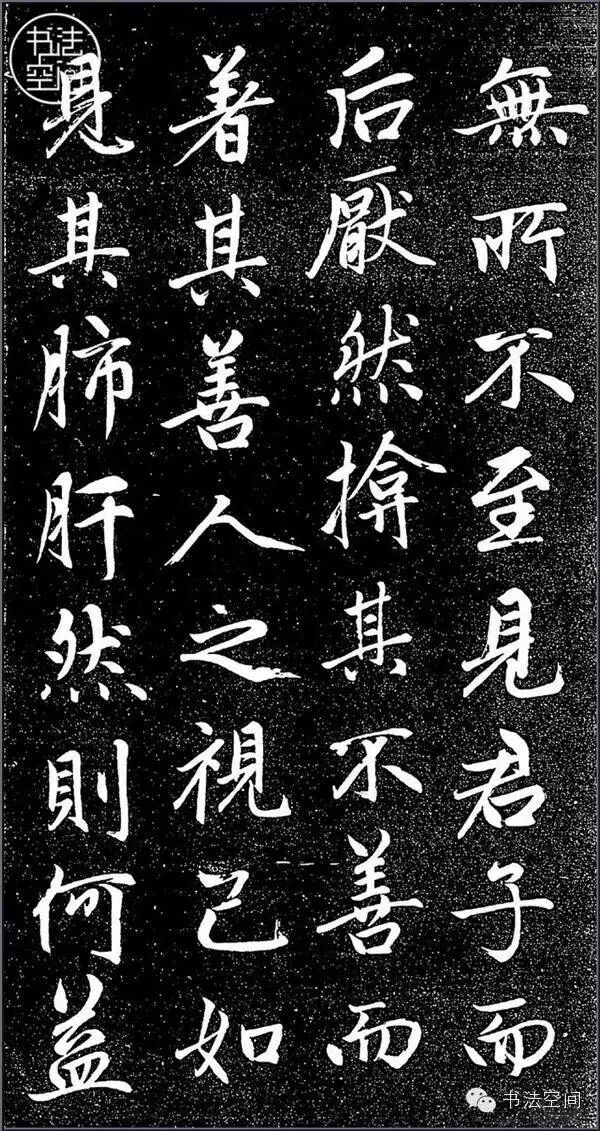 無所不至見君子而
后厭然揜其不善而
著其善人之視己如
見其肺肝然則何益
书法空间
书法空间